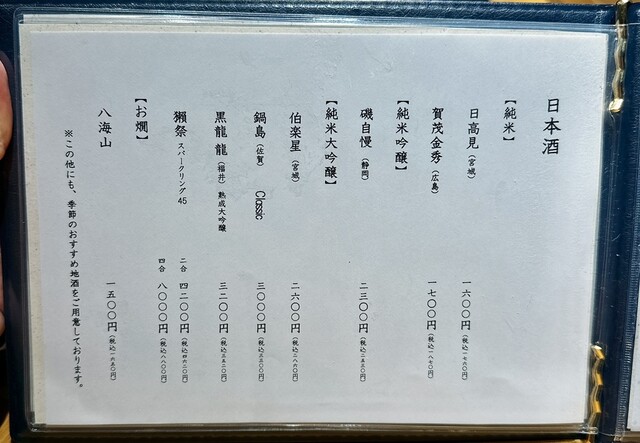 日本酒
【純米】
日高見（宮城） 一六〇〇円（税込一七六〇円）
賀茂金秀（広島） 一七〇〇円（税込一八七〇円）
【純米吟醸】
磯自慢（静岡） 二三〇〇円（税込二五三〇円）
【純米大吟醸】
伯楽星（宮城） 二六〇〇円（税込二八六〇円）
鍋島（佐賀） Classic 三〇〇〇円（税込三三〇〇円）
黒龍 龍（福井）熟成大吟醸 三二〇〇円（税込三五二〇円）
獺祭 スパークリング45 二合 四二〇〇円（税込四六二〇円）
四合 八〇〇〇円（税込八八〇〇円）
【お燗】
八海山 一五〇〇円（税込一六五〇円）
※この他にも、季節のおすすめ地酒をご用意しております。